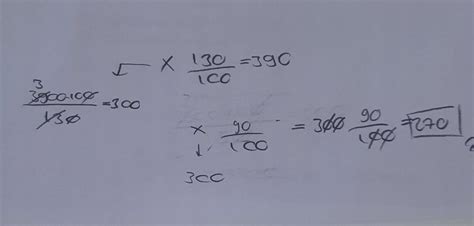 x 130/100 = 390
3
3900.100/130 = 300
x 90/100 = 300 90/100 = 270
300